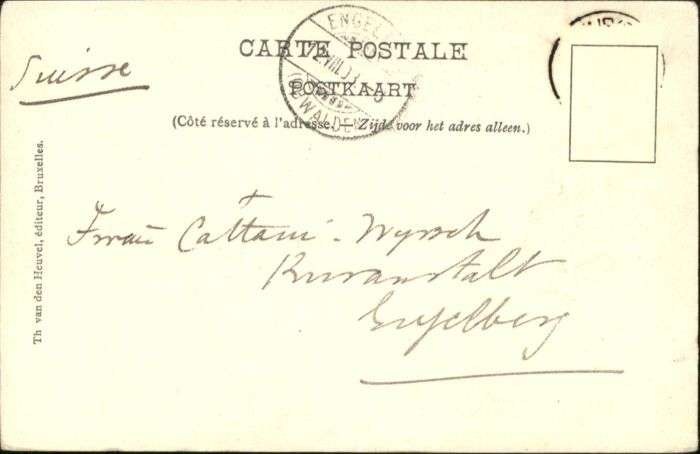 CARTE POSTALE
POSTKAART
(Côté réservé à l'adresse. — Zijde voor het adres alleen.)
Suisse
Frau Cattani-Wyrsch
Kuranstalt
Engelberg
Th van den Heuvel, éditeur, Bruxelles.